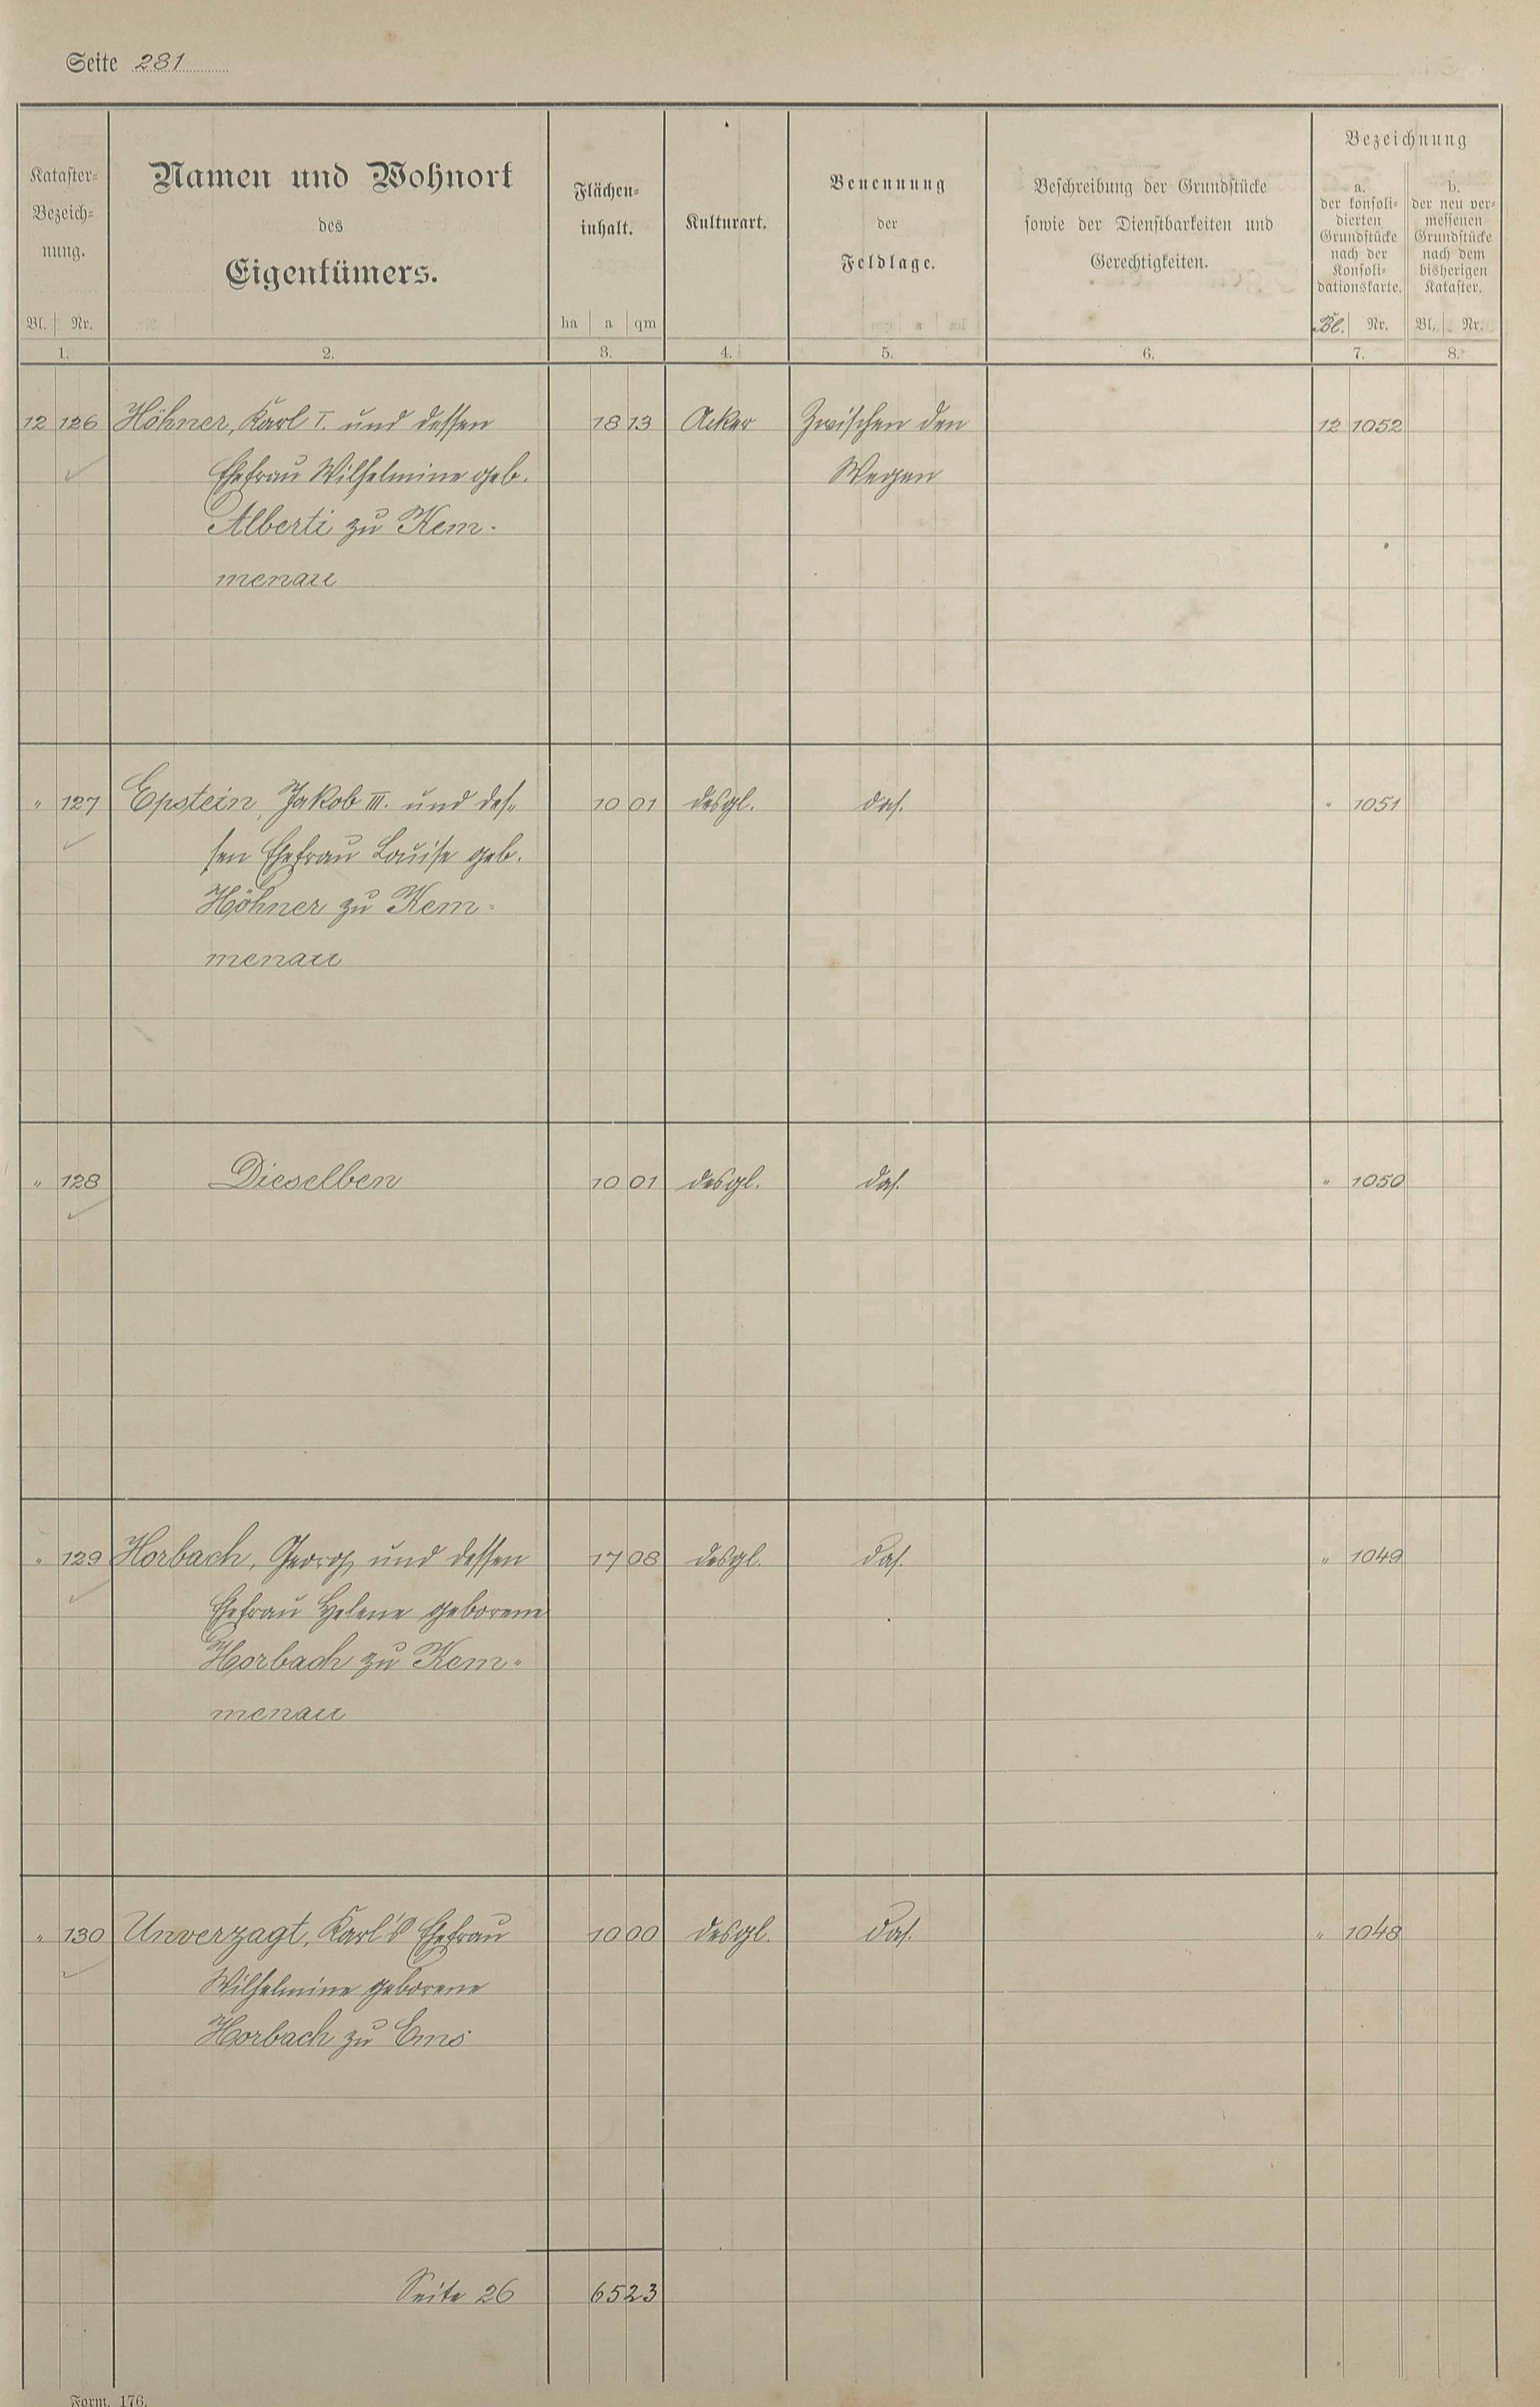 Seite 281
Kataster-
Bezeich-
nung.
Bl. Nr.
1.
Namen und Wohnort
des
Eigentümers.
2.
Flächen-
inhalt.
ha a qm
3.
Kulturart.
4.
Benennung
der
Feldlage.
5.
Beschreibung der Grundstücke
sowie der Dienstbarkeiten und
Gerechtigkeiten.
6.
Bezeichnung
a.
der konsoli-
dierten
Grundstücke
nach der
Konsoli-
dationskarte.
Bl. Nr.
7.
b.
der neu ver-
messenen
Grundstücke
nach dem
bisherigen
Kataster.
Bl. Nr.
8.
12 126 Höhner, Karl I. und dessen 18 13 Acker Zwischen den 12 1052
Ehefrau Wilhelmine geb. Wegen
Alberti zu Kem-
menau
" 127 Epstein, Jakob III. und des- 10 01 desgl. das. " 1051
sen Ehefrau Louise geb.
Höhner zu Kem-
menau
" 128 Dieselben 10 01 desgl. das. " 1050
" 129 Horbach, Georg und dessen 17 08 desgl. das. " 1049
Ehefrau Helene geborene
Horbach zu Kem-
menau
" 130 Unverzagt, Karl's Ehefrau 10 00 desgl. das. " 1048
Wilhelmine geborene
Horbach zu Ems
Seite 26 65 23
Form. 176.